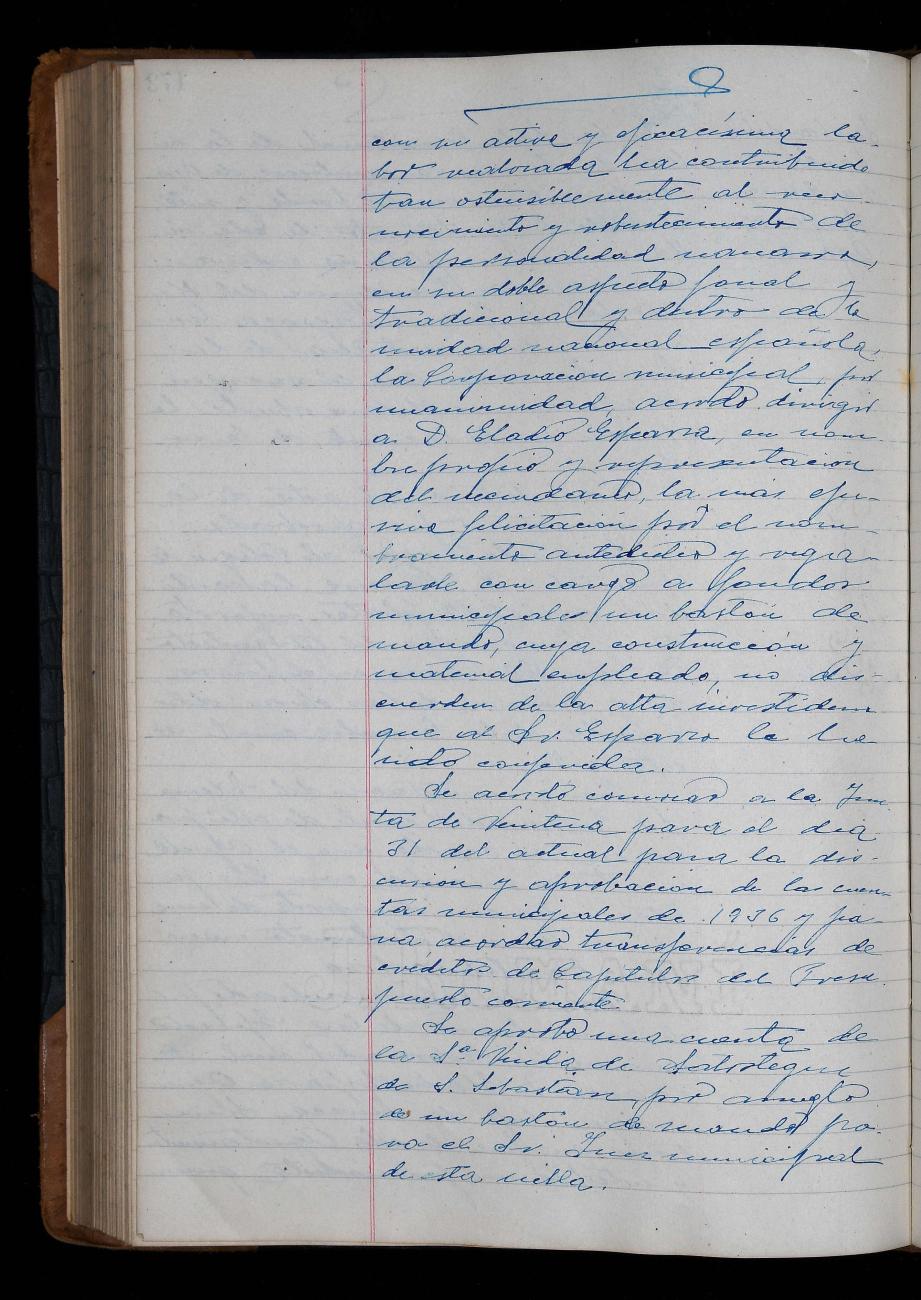 con su activa y eficacísima la-
bor realizada ha contribuido
tan ostensiblemente al reco-
nocimiento y robustecimiento de
la personalidad navarra,
en su doble aspecto foral y
tradicional y dentro de la
unidad nacional española,
la Corporación municipal, por
unanimidad, acordó dirigir
a D. Eladio Esparza, en nom-
bre propio y representación
del vecindario, la más efu-
siva felicitación por el nom-
bramiento antedicho y rega-
larle con cargo a fondos
municipales un bastón de
mando, cuya construcción y
material empleado, no dis-
cuerden de la alta investidura
que al Sr. Esparza le ha
sido conferida.
Se acordó convocar a la Jun-
ta de Veintena para el día
31 del actual para la dis-
cusión y aprobación de las cuen-
tas municipales de 1936 y pa-
ra acordar transferencias de
créditos de Capítulos del Presu-
puesto corriente.
Se aprobó una cuenta de
la Sª Viuda de
de S. Sebastián, por arreglo
de un bastón de mando pa-
ra el Sr. Juez municipal
de esta villa.